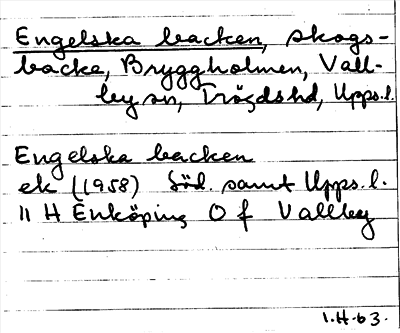 Engelska backen, skogs-
backe, Bryggholmen, Vall-
by sn, Trögds hd, Upps. l.
Engelska backen
ek (1958) Söd. samt Upps. l.
11 H Enköping O f Vallby
1.H.63.